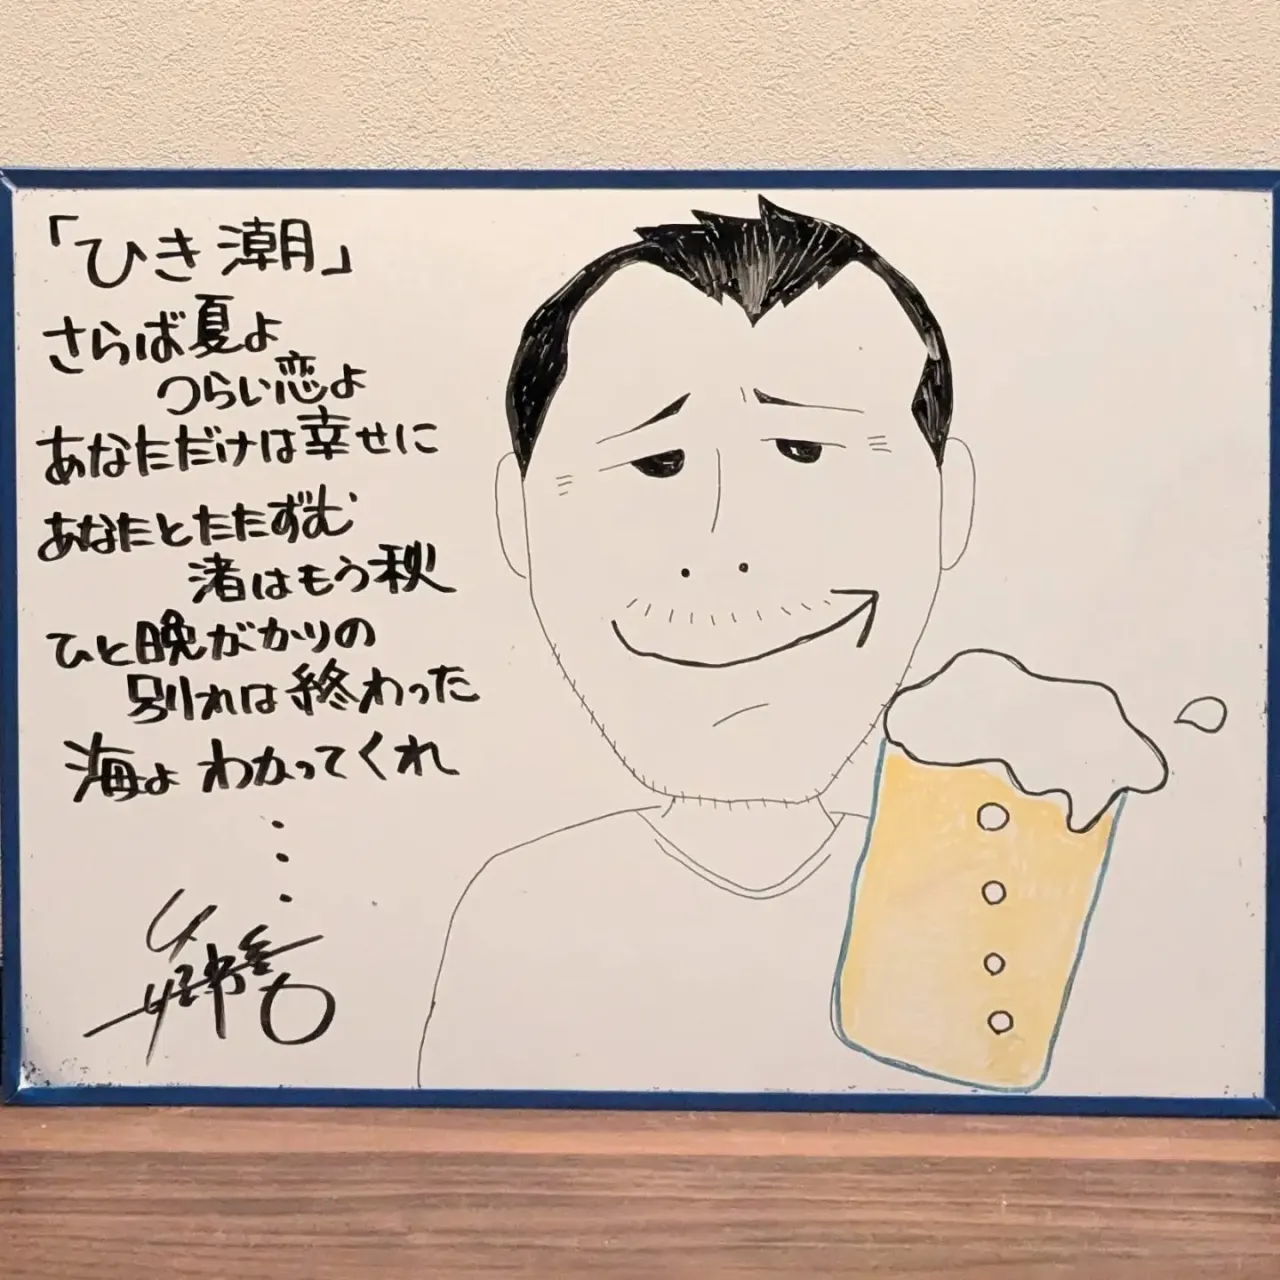 「ひき潮」
さらば夏よ
つらい恋よ
あなただけは幸せに
あなたとたたずむ
渚はもう秋
ひと晩がかりの
別れは終わった
海よ わかってくれ